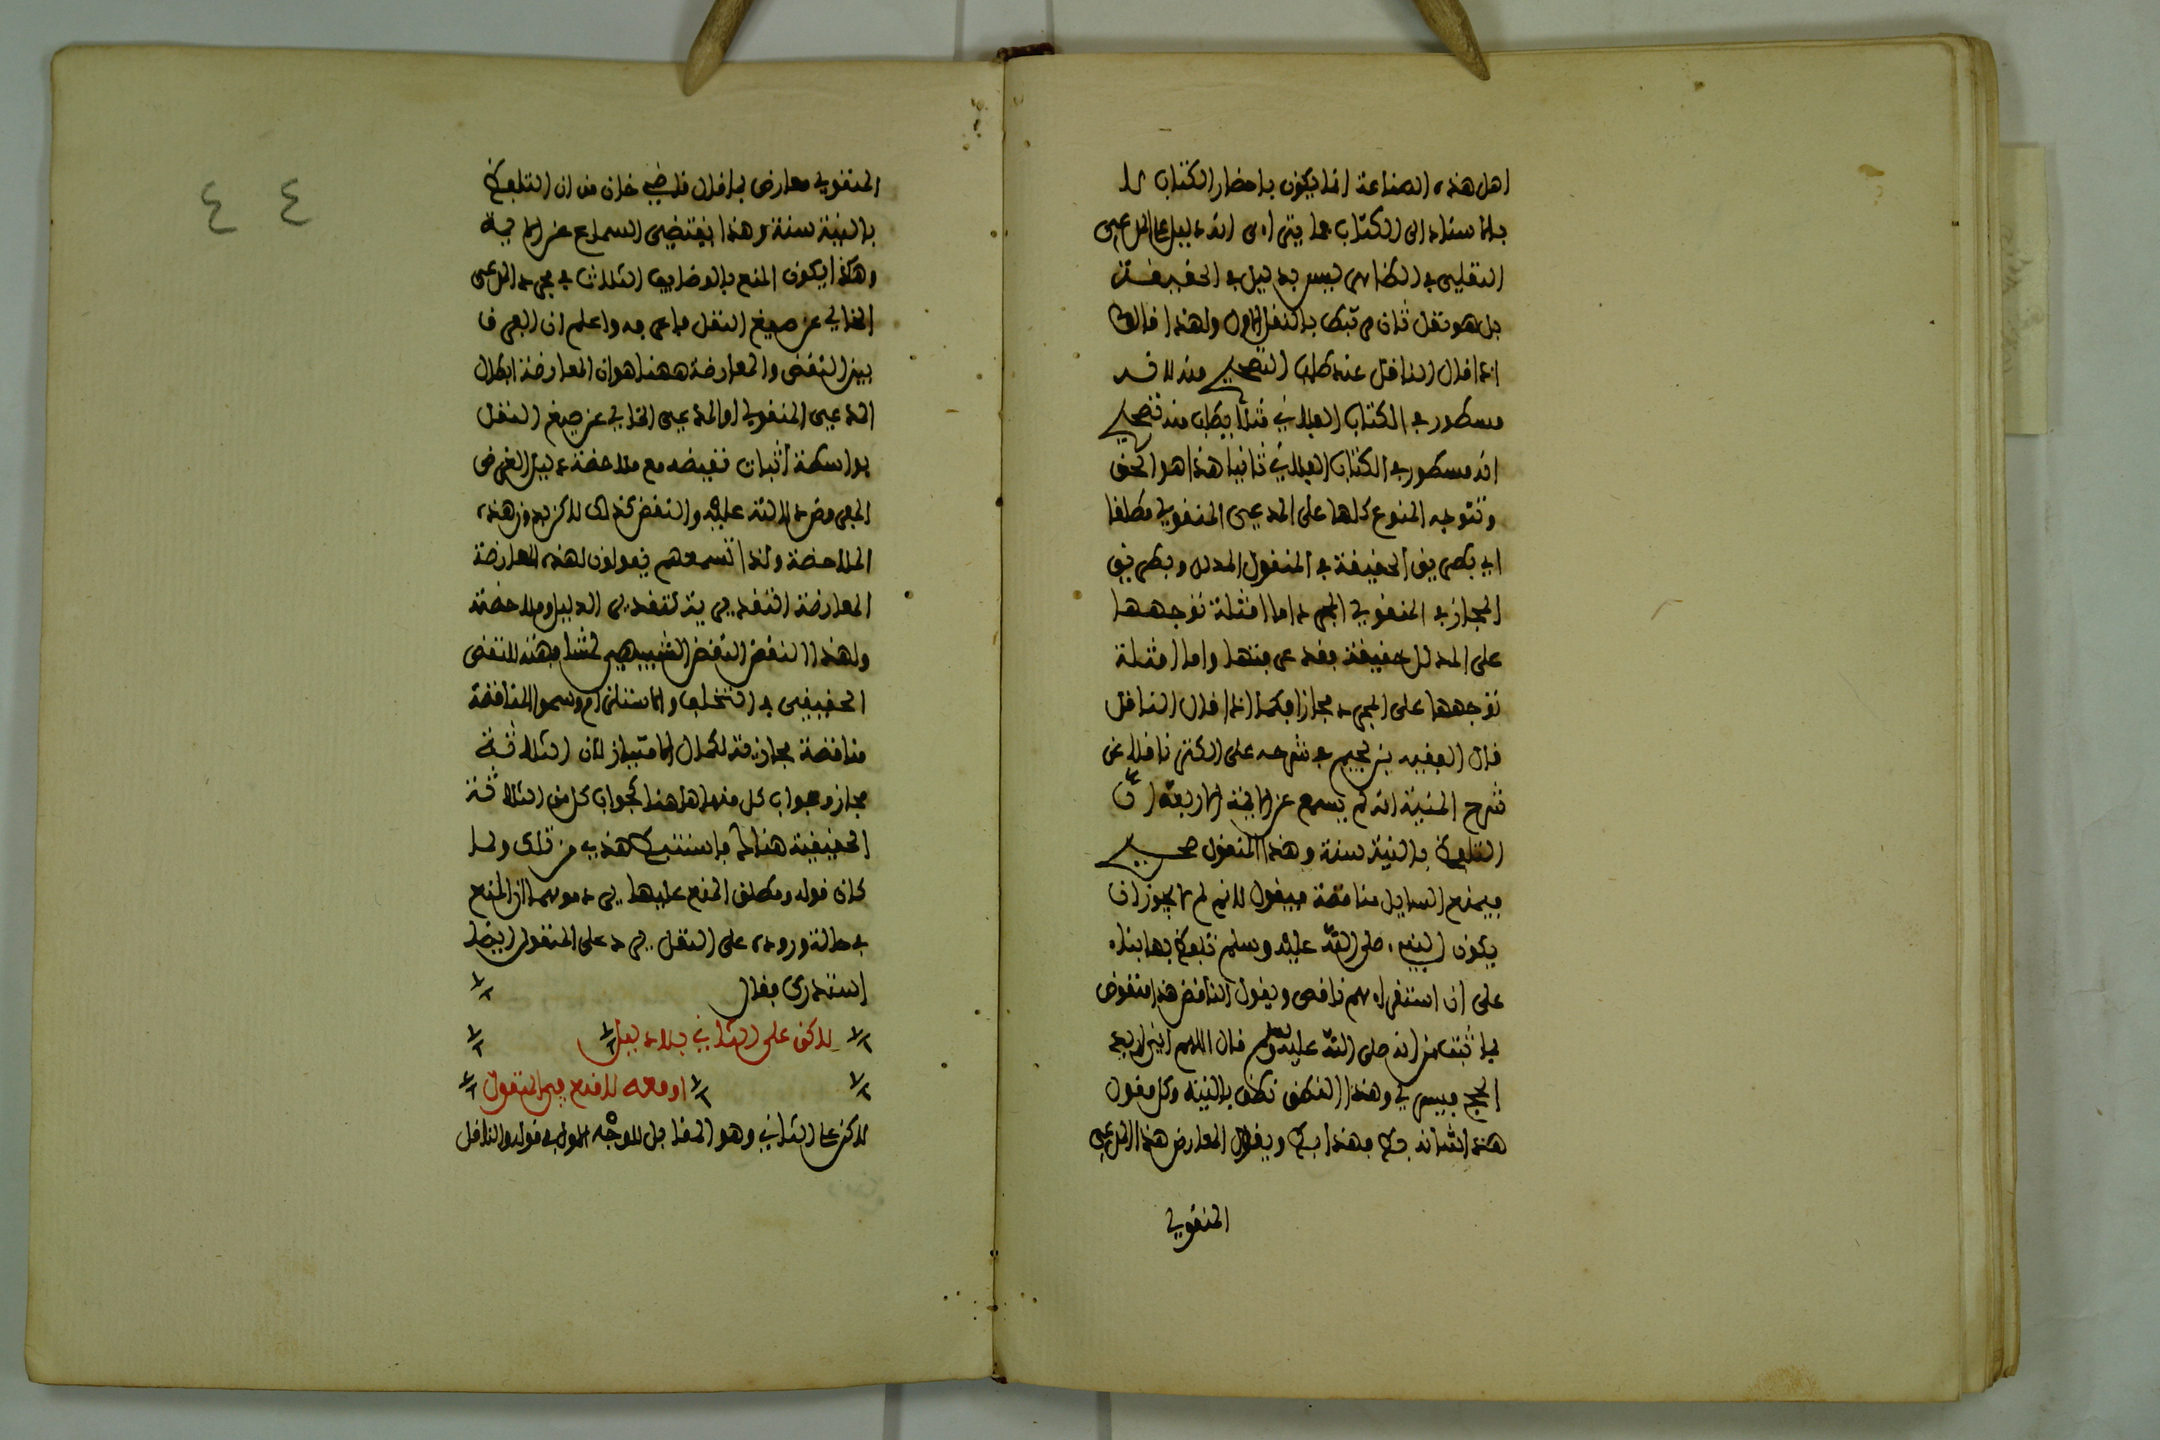 اهل هذه الصناعة انما يكون باحضار الكتاب لا
بالاستناد الى الكتاب مما يتراءى انه دليل على المدعى
النقلي في الظاهر ليس بدليل في الحقيقة
بل هو نقل ثان مرتبط بالنقل الاول ولهذا قالوا
اذا قال الناقل عند طلب التصحيح منه لا قد
مسطور في الكتاب الفلاني مثلا يطلب منه تصحيح
انه مسطور في الكتاب الفلاني ثانيا هذا هو الحق
وتتوجه المنوع كلها على المدعى المنقولي مطلقا
اي بطريق الحقيقة في المنقول المدلل وبطريق
المجاز في المنقولي المجرد اما امثلة توجهها
على المدلل حقيقة فقد عرفتها واما امثلة
توجهها على المجرد مجازا فكما اذا قال الناقل
قال الفقيه بن نجيم في شرحه على الكنز ناقلا عن
شرح المنية انه لم يسمع عن الايمة الاربعة ان
التلفظ بالنية سنة وهذا المنقول صحيح
فيمنع السايل مناقضة فيقول لانم لم لا يجوز ان
يكون النبيء صلى الله عليه وسلم تلفظ بها بناء
على ان استقراءهم ناقص ويقول الناقض هذا منقوض
بما ثبت من انه صلى الله عليه وسلم قال اللهم اني اريد
الحج فيسره لي وهذا النطق نطق بالنية وكل منقول
هذا شانه فهذا ويقول المعارض هذا المدعى
المنقولي
المنقولي معارض بما قال قاضي خان من ان التلفظ
بالنية سنة وهذا يقتضي السماع عن الايمة
وهكذا يكون المنع بالوضايف الثلاث في مجرد المدعى
الخالي عن صيغ النقل فاعرفه واعلم ان الفرق
بين النقض والمعارضة ههنا هو ان المعارضة ابطال
المدعى المنقولي او المدعى الخالي عن صيغ النقل
بواسطة اثبات نقيضه مع ملاحضة دليل الغرض
المفروض دلالته عليه والنقض كذلك لاكن بدون هذه
الملاحضة ولذا تسمعهم يقولون لهذه المعارضة
المعارضة التقديرية لتقدير الدليل وملاحضته
ولهذا النقض النقض الشبيهي لمشابهته للنقض
الحقيقي في التخلف والاستلزام وسموا المناقضة
مناقضة مجازية لكمال الامتياز لان الثلاثة
مجاز وجواب كل منها ها هنا كجواب كل من الثلاثة
الحقيقية هناك فاستنبط هذه من تلك ولما
كان قوله ومطلق المنع عليها يرد موهما ان المنع
في حالة وروده على النقل يرد على المنقول ايضا
استدرك فقال
لاكن على الثاني بلا دليل
او معه لا منع في المنقول
لاكن على الثاني وهو المقابل للوجه الاول في قوله والناقل
٤ ٤